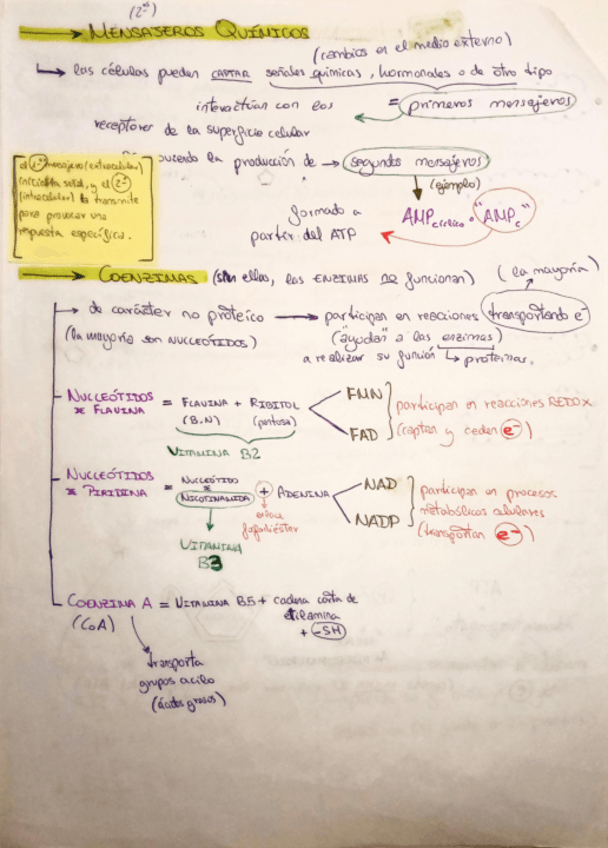 (2os)
→ MENSAJEROS QUÍMICOS
(cambios en el medio externo)
↳ las células pueden CAPTAR señales químicas, hormonales o de otro tipo
interactúan con los = primeros mensajeros
receptores de la superficie celular
produciendo la producción de → segundos mensajeros
(ejemplo)
formado a AMP cíclico o "AMPc"
partir del ATP
el 1er mensajero (extracelular)
inicia la señal, y el 2º
(intracelular) la transmite
para provocar una
respuesta específica.
→ COENZIMAS (sin ellas, las ENZIMAS no funcionan) (la mayoría)
→ de carácter no proteico → participan en reacciones transportando e-
(la mayoría son NUCLEÓTIDOS) ("ayudan" a las enzimas)
a realizar su función ↳ proteínas.
NUCLEÓTIDOS = FLAVINA + RIBITOL FMN participan en reacciones REDOX
DE FLAVINA (B.N) (pentosa) FAD (captan y ceden e-)
VITAMINA B2
NUCLEÓTIDOS = NUCLEÓTIDO DE NICOTINAMIDA + ADENINA NAD participan en procesos
DE PIRIDINA enlace fosfodiéster NADP metabólicos celulares
(transportan e-)
VITAMINA
B3
COENZIMA A = VITAMINA B5 + cadena corta de
(CoA) etilamina
+ -SH
transporta
grupos acilo
(ácidos grasos)